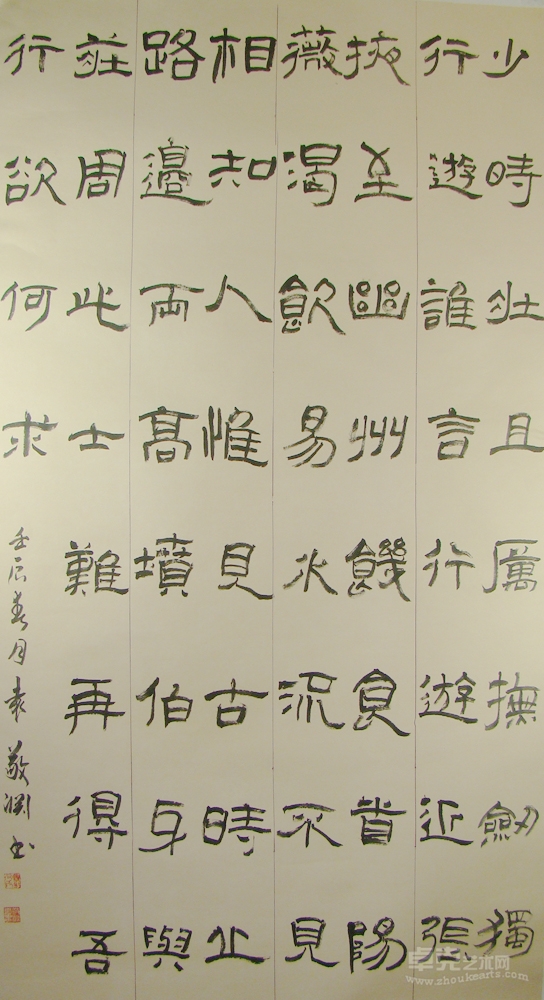 少時壯且厲撫劍獨
行遊誰言行遊近張
掖至幽州饑食首陽
薇渴飲易水流不見
相知人惟見古時丘
路邊兩高墳伯牙與
莊周此士難再得吾
行欲何求
壬辰春月袁敬淵書
卓克艺术网
www.zhoukearts.com